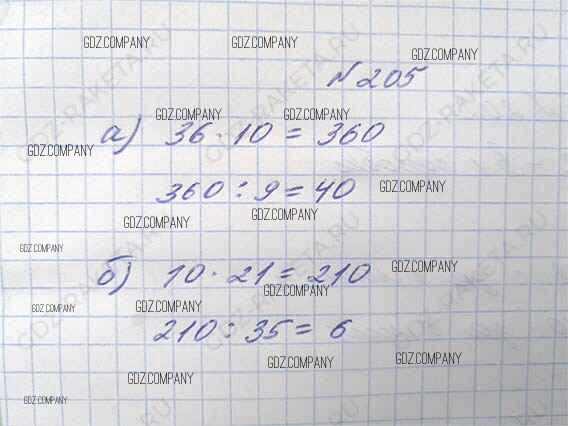 GDZ.COMPANY GDZ.COMPANY GDZ.COMPANY
№205
GDZ.COMPANY GDZ.COMPANY
GDZ.COMPANY
а) 36 · 10 = 360
360 : 9 = 40 GDZ.COMPANY
GDZ.COMPANY GDZ.COMPANY
GDZ.COMPANY
б) 10 · 21 = 210 GDZ.COMPANY
GDZ.COMPANY
GDZ.COMPANY GDZ.COMPANY
210 : 35 = 6
GDZ.COMPANY GDZ.COMPANY
GDZ.COMPANY
GDZ.COMPANY
GDZ-RAKETA.RU
GDZ-RAKETA.RU
GDZ-RAKETA.RU
GDZ-RAKETA.RU